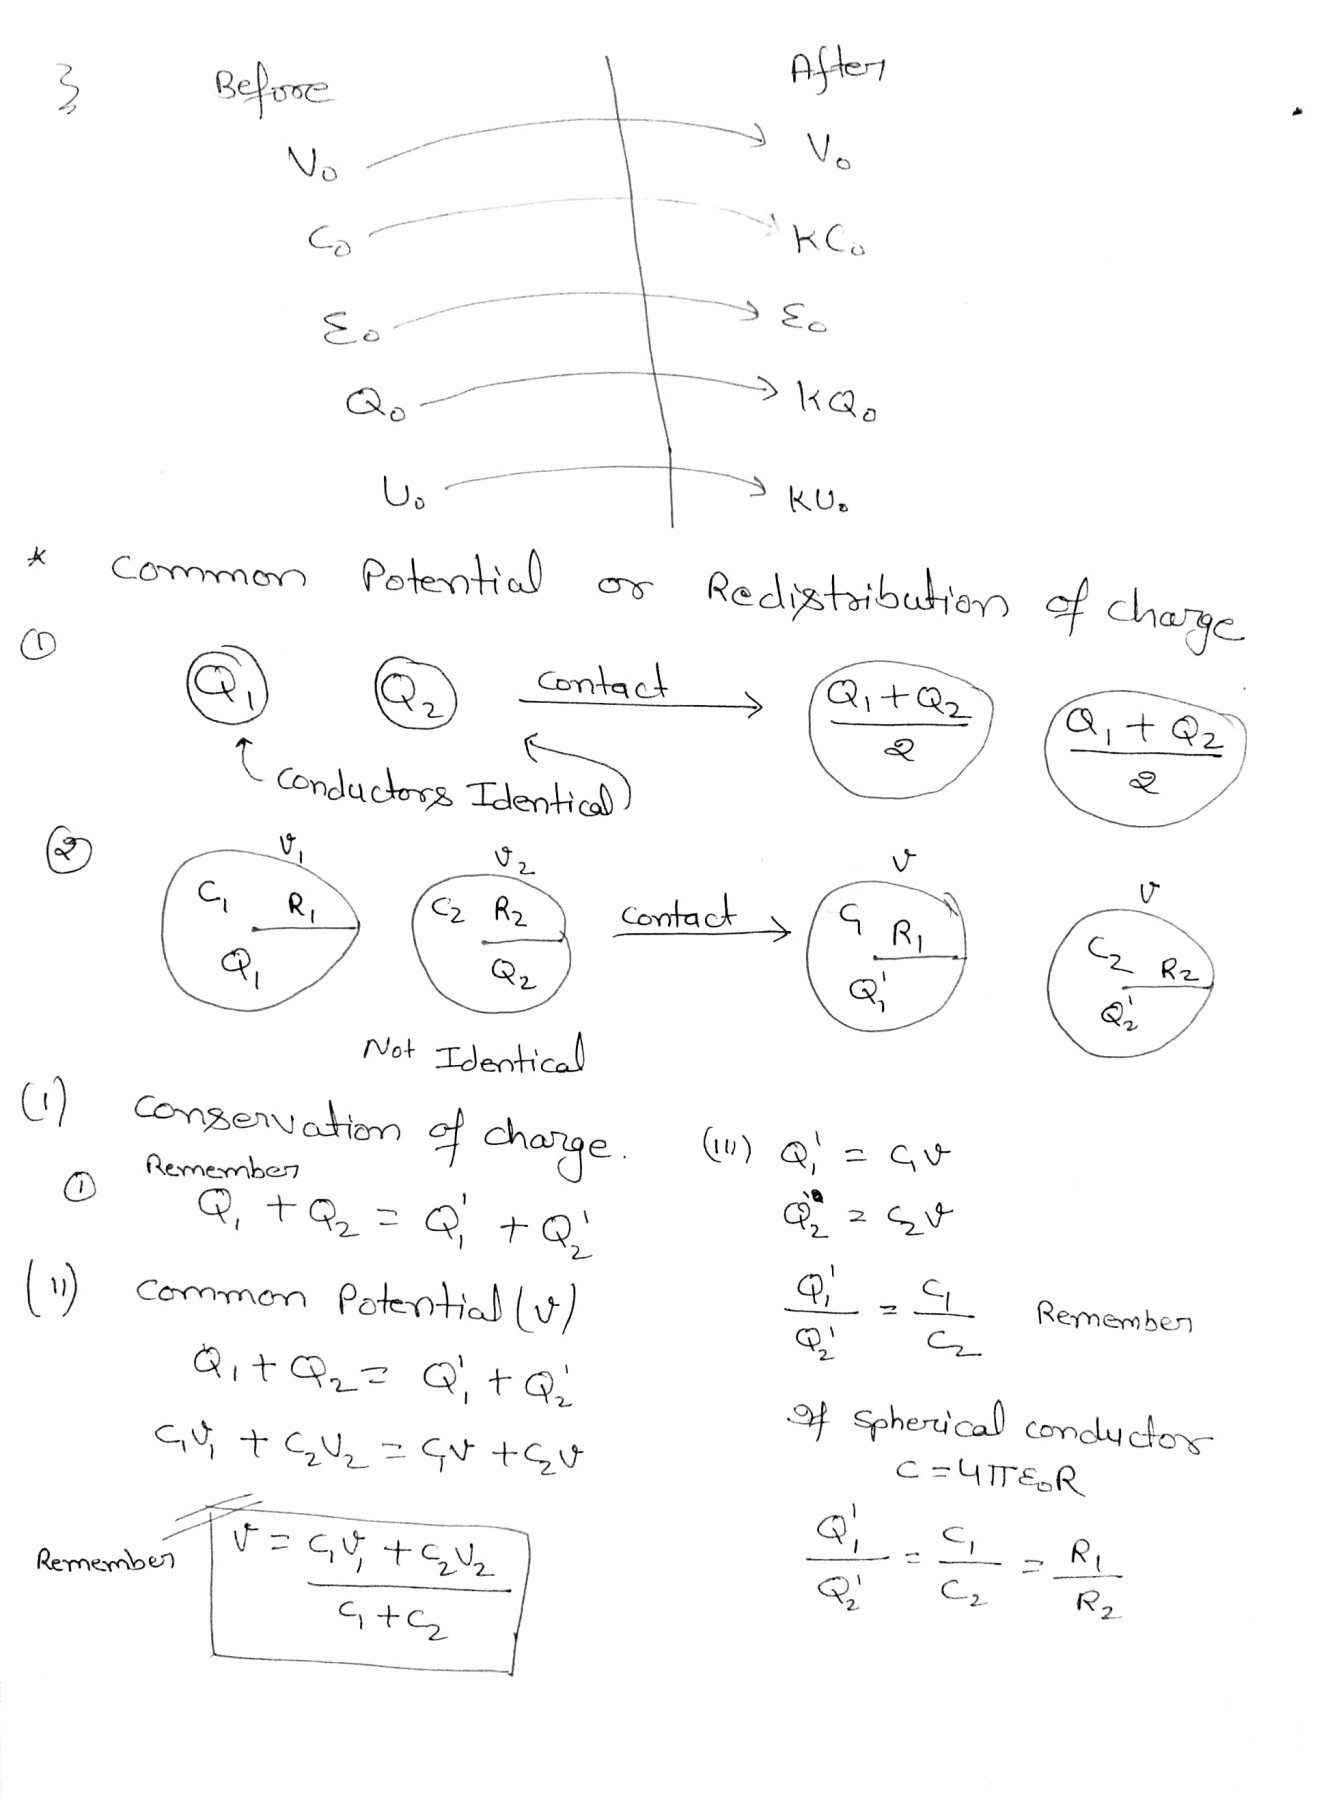 3 Before After
V₀ → V₀
C₀ → KC₀
Ɛ₀ → Ɛ₀
Q₀ → KQ₀
U₀ → KU₀
* Common Potential or Redistribution of charge
①
Q₁ Q₂ contact → Q₁ + Q₂ / 2 Q₁ + Q₂ / 2
Conductors Identical
②
V₁ V₂ V V
C₁ R₁ Q₁ C₂ R₂ Q₂ contact → C₁ R₁ Q₁' C₂ R₂ Q₂'
Not Identical
(i) conservation of charge.
Remember
① Q₁ + Q₂ = Q₁' + Q₂'
(ii) common Potential (v)
Q₁ + Q₂ = Q₁' + Q₂'
C₁V₁ + C₂V₂ = C₁V + C₂V
Remember V = C₁V₁ + C₂V₂ / C₁ + C₂
(iii) Q₁' = C₁V
Q₂' = C₂V
Q₁' / Q₂' = C₁ / C₂ Remember
If spherical conductor
C = 4πƐ₀R
Q₁' / Q₂' = C₁ / C₂ = R₁ / R₂